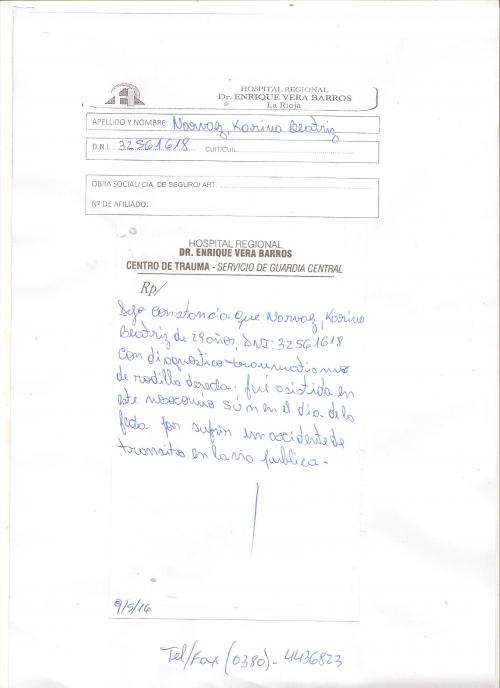 HOSPITAL REGIONAL
Dr. ENRIQUE VERA BARROS
La Rioja
APELLIDO Y NOMBRE: Narvaz, Karina Beatriz
D.N.I.: 32561618 CUIT/CUIL:
OBRA SOCIAL/ CIA. DE SEGURO/ ART.
Nº DE AFILIADO:
HOSPITAL REGIONAL
DR. ENRIQUE VERA BARROS
CENTRO DE TRAUMA - SERVICIO DE GUARDIA CENTRAL
Rp/
Dejo constancia que Narvaz, Karina
Beatriz de 29 años, DNI: 32561618
con diagnostico traumatismo
de rodilla derecha. fué asistida en
este nosocomio en el día de la
fecha por sufrir un accidente de
transito en la via publica.
9/5/16
Tel/Fax (0380)-4436823